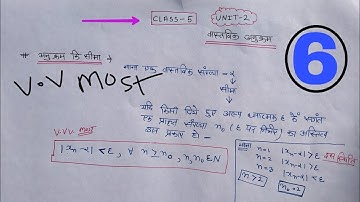 CLASS-5
UNIT-2
वास्तविक अनुक्रम
6
* अनुक्रम कि सीमा
V.V MOST
माना एक वास्तविक संख्या - α
सीमा
यदि किसी दिये हुए अल्प धनात्मक ε के संगत
एक प्राकृत संख्या n₀ (ε पर निर्भर) का अस्तित्व
इस प्रकार हो -
V.V.V. most
|xₙ-α| < ε, ∀ n ≥ n₀, n, n₀ ∈ N
माना
n=1 |x₁-α|>ε
n=2 |x₂-α|>ε
n=3 |x₃-α|<ε
n>2
n₀=2